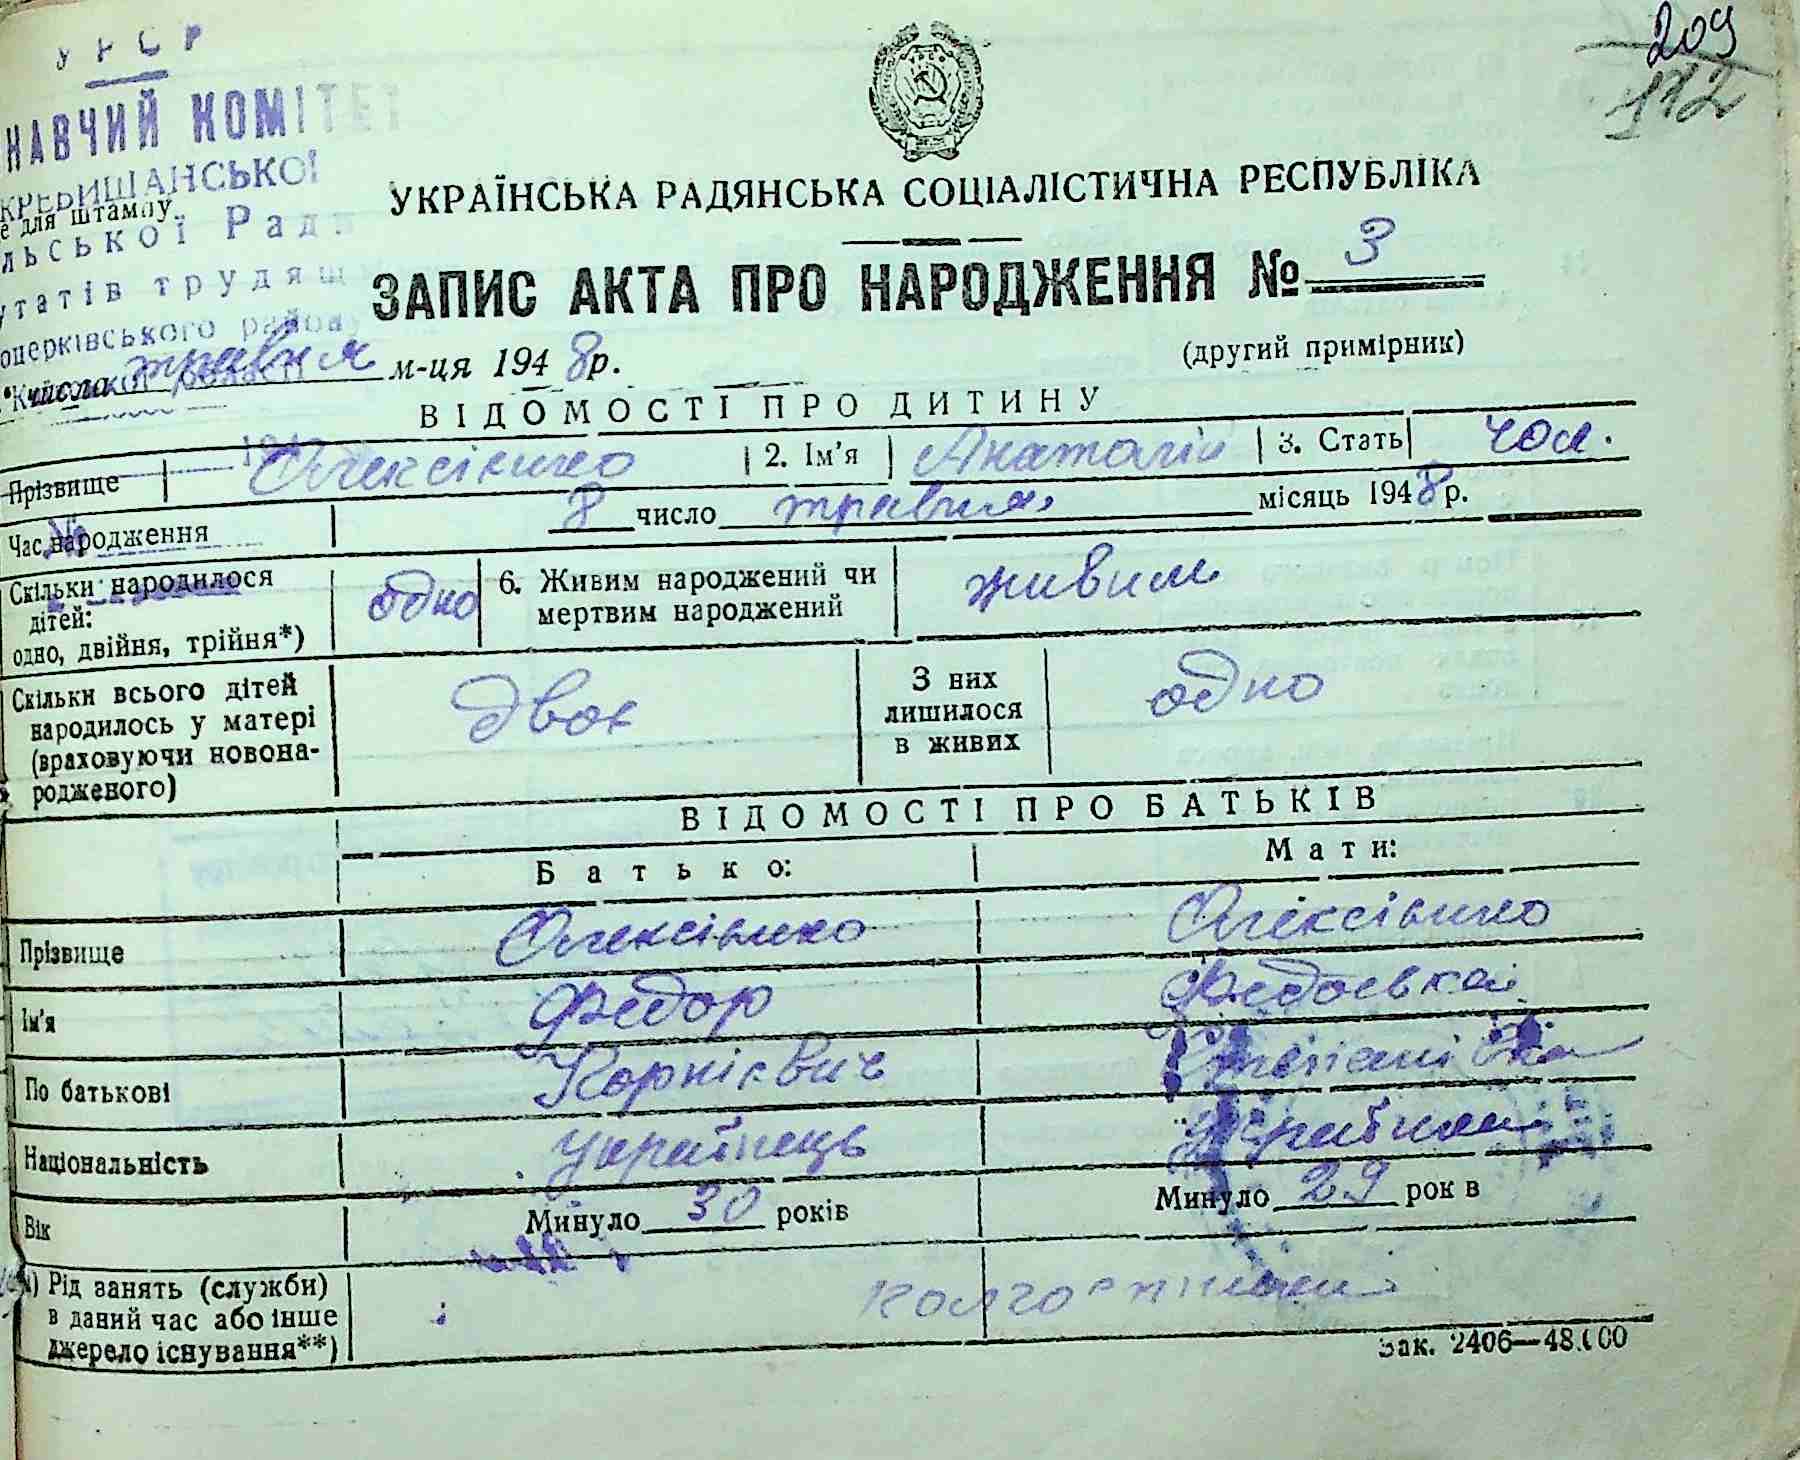 209
112
УРСР
НАВЧИЙ КОМІТЕТ
е для штампу
льської Ради
утатів трудящ
оцерківського району
УКРАЇНСЬКА РАДЯНСЬКА СОЦІАЛІСТИЧНА РЕСПУБЛІКА
ЗАПИС АКТА ПРО НАРОДЖЕННЯ № 3
(другий примірник)
числа травня м-ця 1948 р.
ВІДОМОСТІ ПРО ДИТИНУ
Прізвище Олексієнко 2. Ім'я Анатолій 3. Стать чол.
Час народження 8 число травня місяць 1948 р.
Скільки народилося дітей: одно, двійня, трійня*) одно 6. Живим народжений чи мертвим народжений живим
Скільки всього дітей народилось у матері (враховуючи новона-родженого) двоє З них лишилося в живих одно
ВІДОМОСТІ ПРО БАТЬКІВ
Батько: Мати:
Прізвище Олексієнко Олексієнко
Ім'я Федор
По батькові Корнієвич Степанівна
Національність українець Українка
Вік Минуло 30 років Минуло 29 рок в
) Рід занять (служби) в даний час або інше джерело існування**)
Зак. 2406—48.000